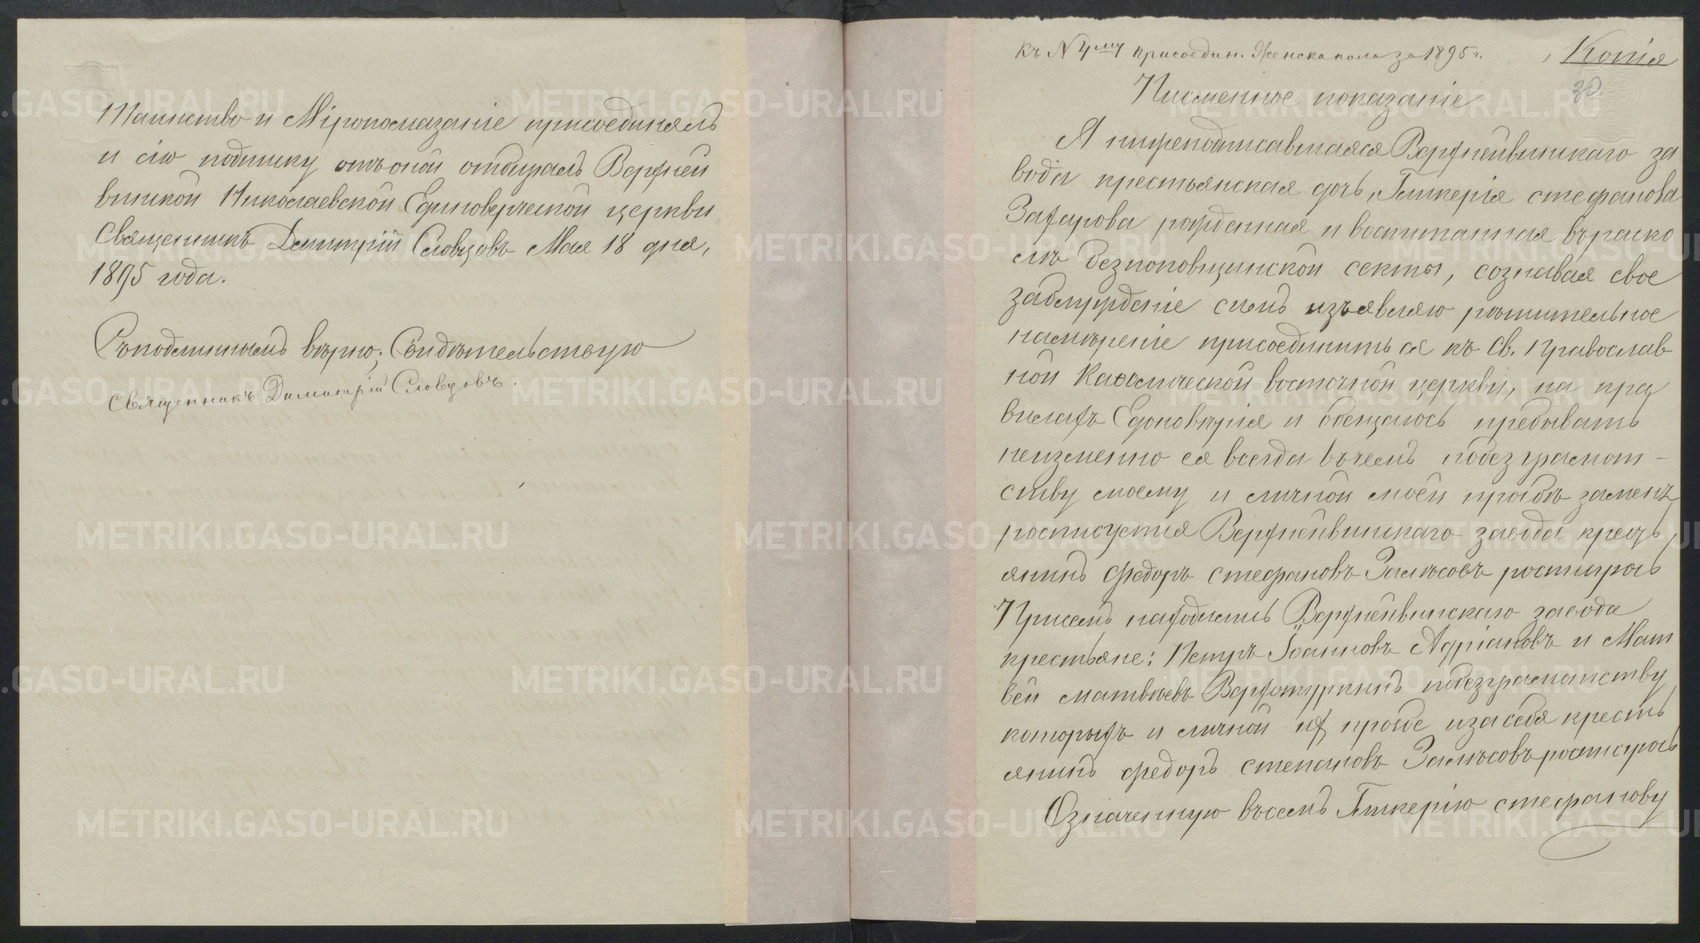 Таинство и Міропомазаніе присоединялъ
и сію подписку отъ оной отбиралъ Верхней
винской Николаевской Единоверческой церкви
Священникъ Димитрій Словцовъ Мая 18 дня,
1895 года.
Съ подлиннымъ вѣрно. Свидѣтельствую
Священникъ Димитрій Словцовъ.
Къ № 4му присоедин. Женска пола за 1895 г.
Копія
30
Письменное показаніе
Я нижеподписавшаяся Верхнейвинскаго за
вода крестьянская дочь, Гликерія стефанова
Захарова рожденная и воспитанная въ раско
лѣ безпоповщинской секты, сознавая свое
заблужденіе симъ изъявляю рѣшительное
намѣреніе присоединиться къ Св. Православ
ной Каѳолической восточной церкви, на пра
вилахъ Единовѣрія и обещаюсь пребывать
неизменно ея всегда въ чемъ по безграмот-
ству моему и личной моей прозбѣ заменя
росписуется Верхнейвинскаго завода кресть
янинъ Федоръ стефановъ Залѣсовъ росписуюсь
При семъ находились Верхнейвинскаго завода
крестьяне: Петръ Іоанновъ Адріановъ и Мат
вей матвѣевъ Верхотуркинъ по безграмотству
которыхъ и личной их прозбе и за себя кресть
янинъ Федоръ степановъ Залѣсовъ росписуюсь
Означенную въ семъ Гликерію стефанову
METRIKI.GASO-URAL.RU